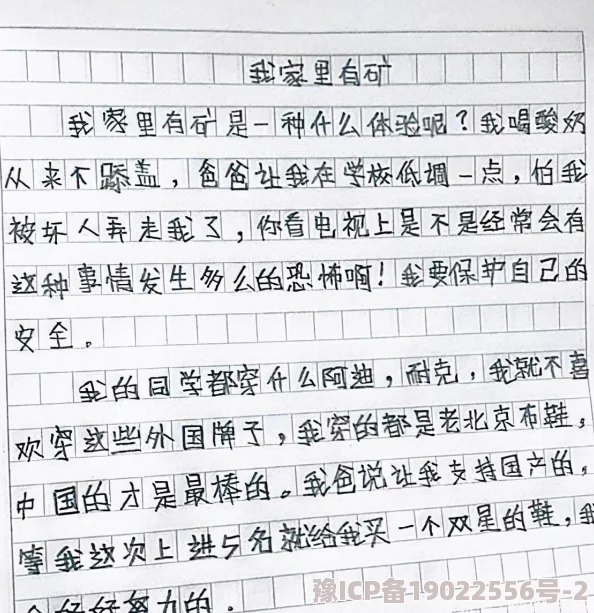 我家里有矿
我家里有矿是一种什么体验呢?我喝酸奶
从来不舔盖,爸爸让我在学校低调一点,怕我
被坏人弄走我了,你看电视上是不是经常会有
这种事情发生多么的恐怖啊!我要保护自己的
安全。
我的同学都穿什么阿迪,耐克,我就不喜
欢穿这些外国牌子,我穿的都是老北京布鞋,
中国的才是最棒的。我爸说让我支持国产的,
等我这次上进5名就给我买一个双星的鞋,我
会好好努力的.
豫ICP备19022556号-2